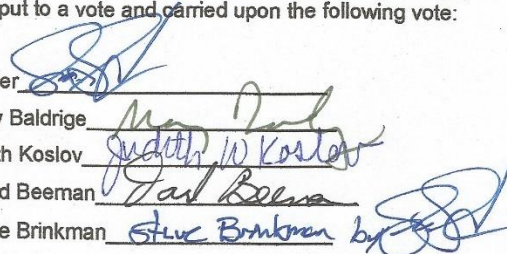 put to a vote and carried upon the following vote:
er
y Baldrige
th Koslov Judith W Koslov
d Beeman Beeman
e Brinkman Steve Brinkman by